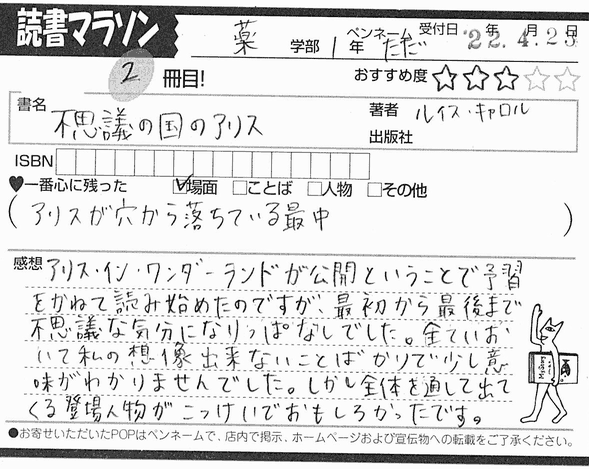 読書マラソン
薬 学部 1年 ペンネーム ただ 受付日 '22年 4月 23日
2 冊目! おすすめ度 ★★★☆☆
書名 不思議の国のアリス 著者 ルイス・キャロル
出版社
ISBN
♥一番心に残った ☑場面 □ことば □人物 □その他
(アリスが穴から落ちている最中)
感想 アリス・イン・ワンダーランドが公開ということで予習
をかねて読み始めたのですが、最初から最後まで
不思議な気分になりっぱなしでした。全てにお
いて私の想像出来ないことばかりで少し意
味がわかりませんでした。しかし全体を通して出て
くる登場人物がこっけいでおもしろかったです。
●お寄せいただいたPOPはペンネームで、店内で掲示、ホームページおよび宣伝物への転載をご了承ください。